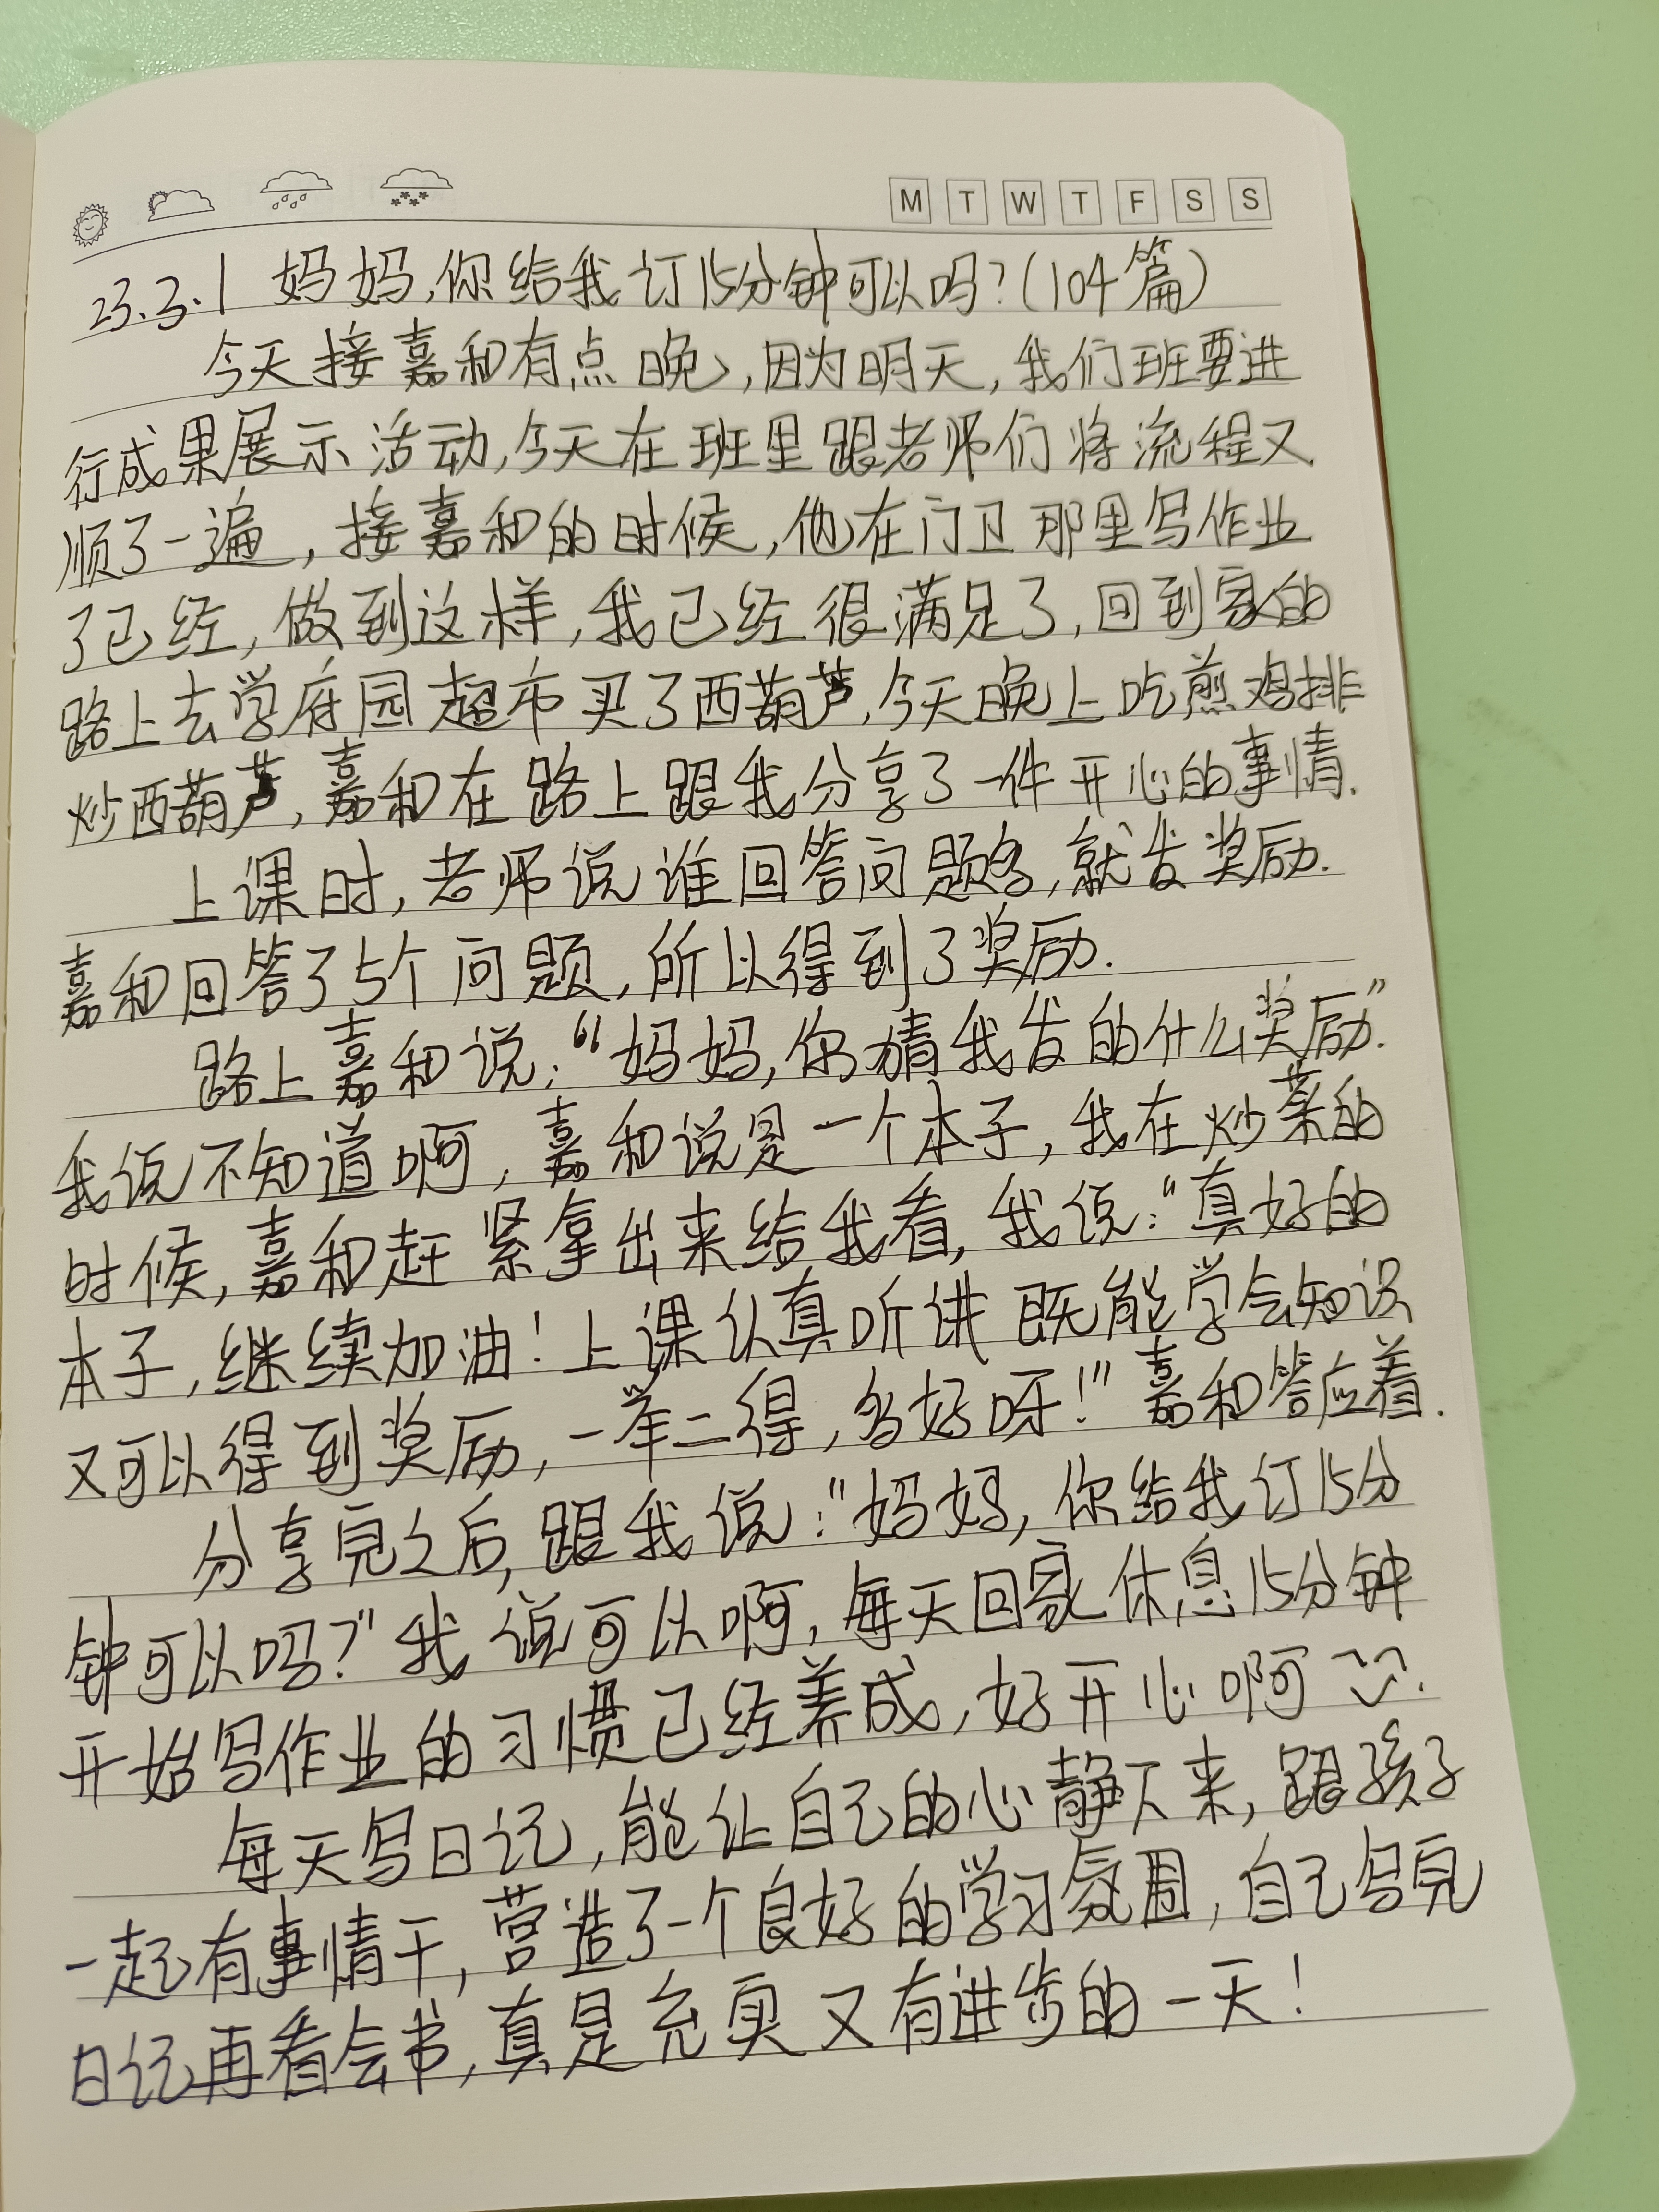 M T W T F S S
23.3.1 妈妈,你给我订15分钟可以吗?(104篇)
今天接嘉和有点晚,因为明天,我们班要进
行成果展示活动,今天在班里跟老师们将流程又
顺了一遍,接嘉和的时候,他在门卫那里写作业
了已经,做到这样,我已经很满足了,回到家的
路上去学府园超市买了西葫芦,今天晚上吃煎鸡排
炒西葫芦,嘉和在路上跟我分享了一件开心的事情.
上课时,老师说谁回答问题多,就发奖励.
嘉和回答了5个问题,所以得到了奖励.
路上嘉和说:“妈妈,你猜我发的什么奖励”.
我说不知道啊,嘉和说是一个本子,我在炒菜的
时候,嘉和赶紧拿出来给我看,我说:“真好的
本子,继续加油!上课认真听讲既能学会知识
又可以得到奖励,一举二得,多好呀!”嘉和答应着.
分享完之后,跟我说:“妈妈,你给我订15分
钟可以吗?”我说可以啊,每天回家休息15分钟
开始写作业的习惯已经养成,好开心啊.
每天写日记,能让自己的心静下来,跟孩子
一起有事情干,营造了一个良好的学习氛围,自己写完
日记再看会书,真是充实又有进步的一天!